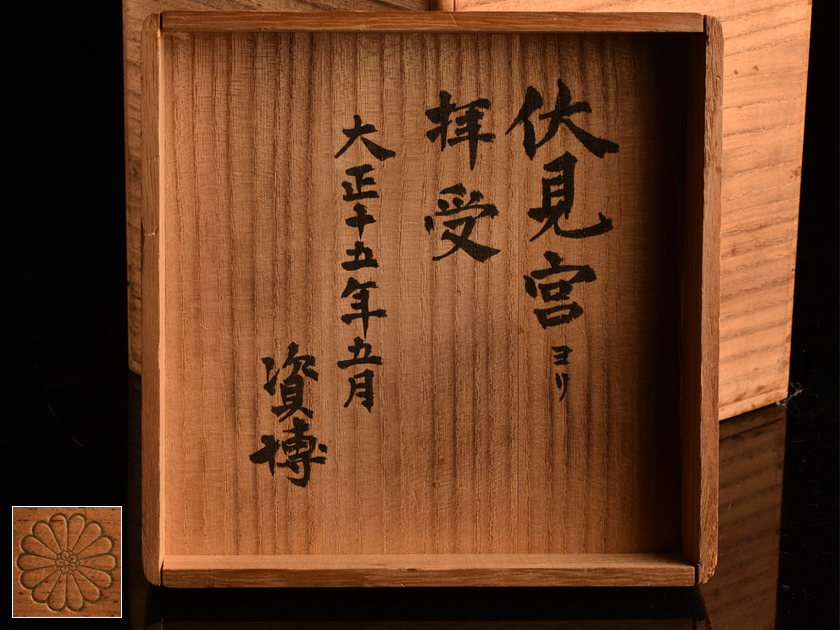 伏見宮ヨリ
拝受
大正十五年五月
資博